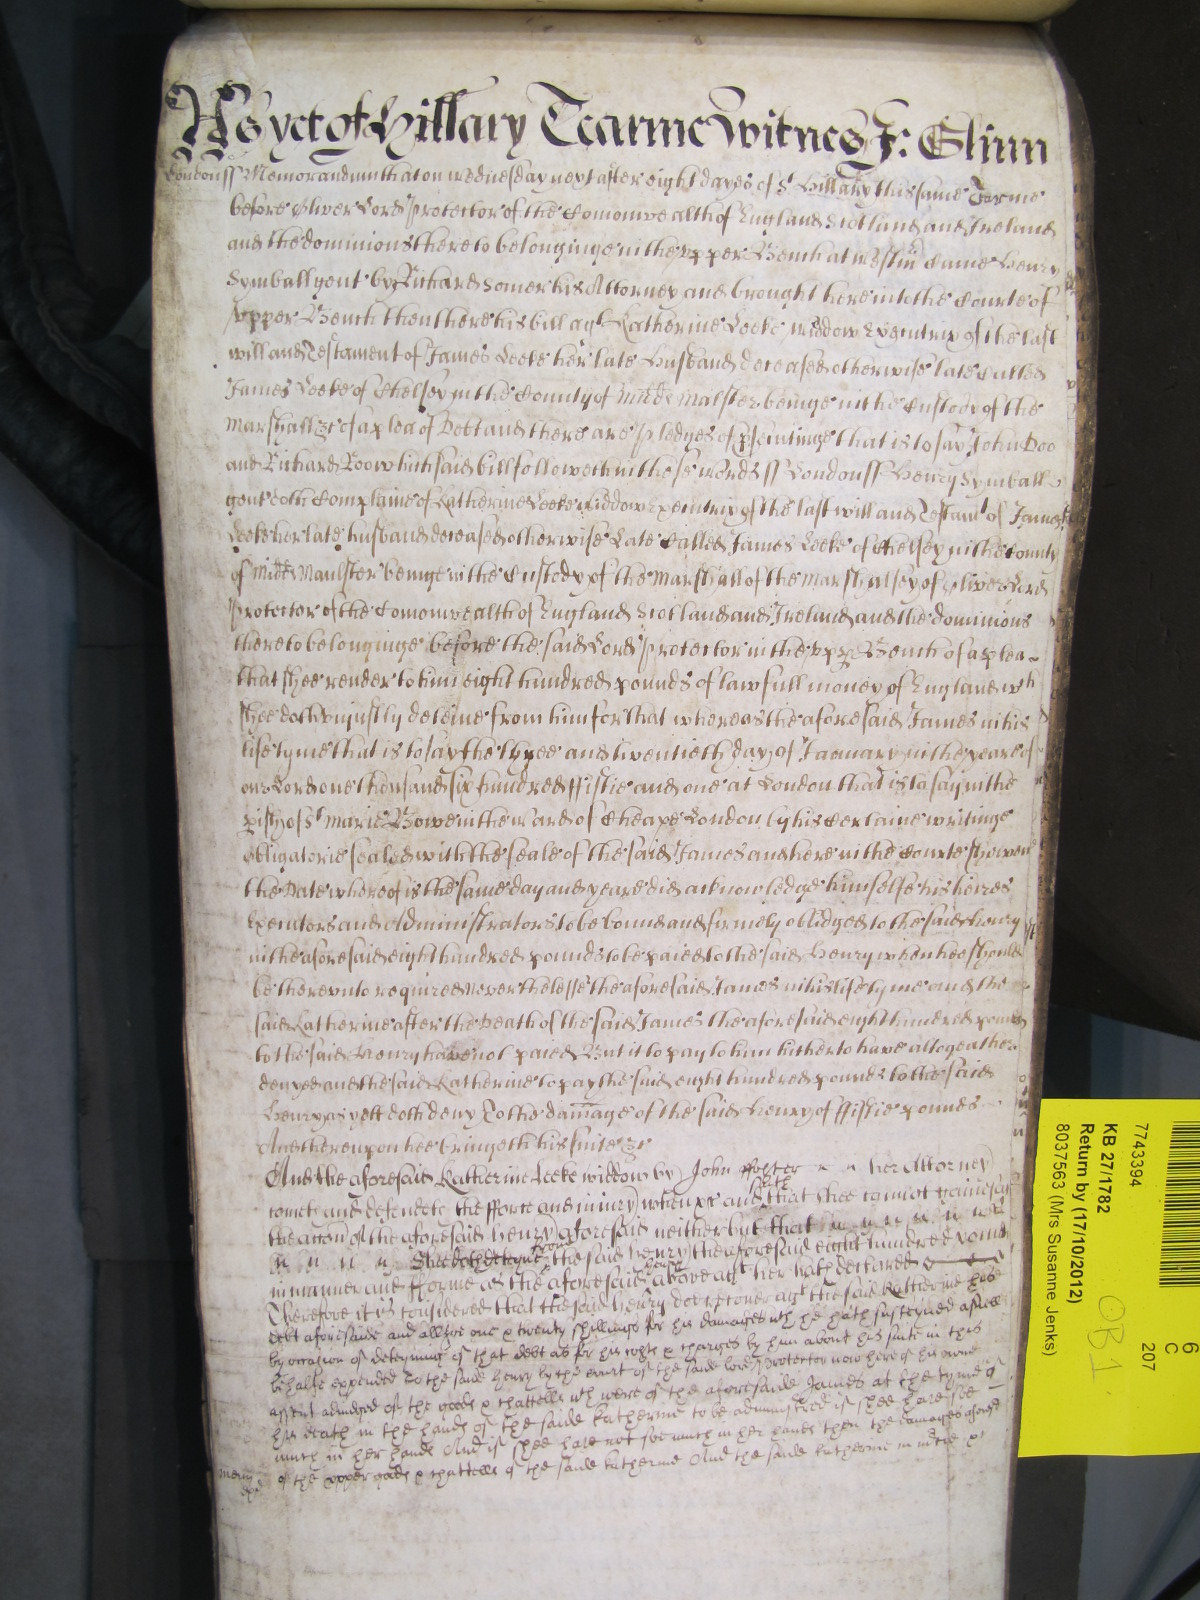 As yet of Hillary Tearme Witnes J: Glinn
London ss Memorandum that on wednesday next after eight dayes of St Hillary this same Terme
before Oliver Lord Protector of the Comonwealth of England Scotland and Ireland
and the dominions thereto belonginge in the upper Bench at westm Came Henry
Symball gent by Richard Somer his Attorney and brought here into the Courte of
upper Bench then there his bill agt Katherine Leeke widdow Executrix of the last
will and Testament of James Leeke her late Husband deceased otherwise late called
James Leeke of Chelsey in the County of Midd Malster beinge in the Custody of the
Marshall &c of a plea of Debt and there are pledges of psecutinge that is to say John Doo
and Richard Roo which said bill followeth in these words ss London ss Henry Symball
gent doth Complaine of Katherine Leeke widdow Executrix of the last will and Testamt of James
Leeke her late husband deceased otherwise Late Called James Leeke of Chelsey in the County
of Midd Maulster beinge in the Custody of the Marshall of the Marshalsey of Oliver Lord
Protector of the Comonwealth of England Scotland and Ireland and the dominions
thereto belonginge before the said Lord Protector in the upp Bench of a plea
that shee render to him eight hundred pounds of lawfull money of England wch
shee doth unjustly deteine from him for that whereas the aforesaid James in his
life tyme that is to say the three and twentieth day of January in the yeare of
our Lord one thousand six hundred ffiftie and one at London that is to say in the
pish of St Marie Bowe in the ward of Cheape London by his Certaine writinge
obligatorie sealed with the seale of the said James and here in the Courte shewen
the Date whereof is the same day and yeare did acknowledge himselfe his heires
Executors and Administrators to be bound and firmely obliged to the said Henry
in the aforesaid eight hundred pounds to be paied to the said Henry when hee should
be thereunto required Neverthelesse the aforesaid James in his life tyme and the
said Katherine after the Death of the said James the aforesaid eight hundred pounds
to the said Henry have not paied But it to pay to him hitherto have altogeather
denyed and the said Katherine to pay the said eight hundred pounds to the said
Henry as yett doth deny To the damage of the said Henry of ffiftie pounds
And thereupon hee bringeth his suite &c
And the aforesaid Katherine Leeke widdow by John ffoster her Attorney
cometh and defendeth the fforce and injury when &c and saith that shee cannot gainesay
the accon of the aforesaid Henry aforesaid neither but that
Shee doth deteyne from the said Henry the aforesaid eight hundred pounds
in manner and fforme as the aforesaid Henry above agt her hath declared
Therefore it is considered that the said Henry doe recover agt the said Katherine his
debt aforesaide and allsoe one & twenty shillings for his damages wch he hath susteyned aswell
by occasion of deteyning of that debt as for his costs & charges by him about his suite in this
behalfe expended to the saide Henry by the court of the saide Lord Protector now here of his owne
assent adiudged of the goods & chattells wch were of the aforesaide James at the tyme of
his death in the hands of the saide Katherine to be administred if shee have soe
much in her hands And if shee have not soe much in her hands then the damages aforesd
of the upper goods & chattells of the saide Katherine And the saide Katherine in mcie &c
7743394
KB 27/1782
Return by (17/10/2012)
8037563 (Mrs Susanne Jenks)
6
C
207
OB 1